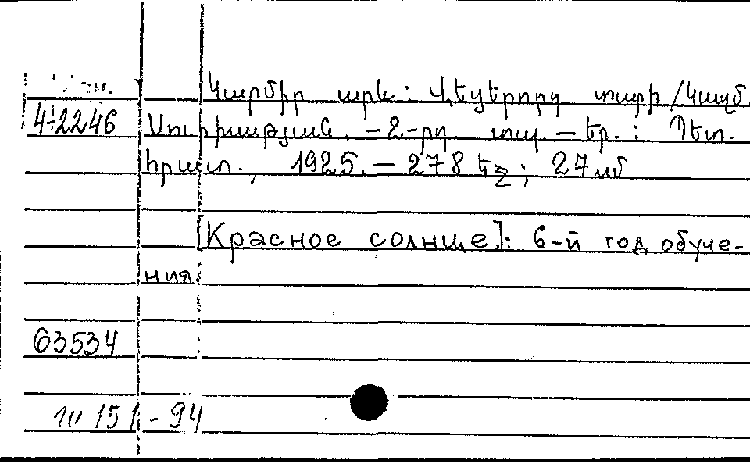 Կարմիր արև: Վեցերորդ տարի / Կազմ.
4-2246
Մուրիաթյան. - 2-րդ տպ. - Եր.: Պետ.
հրատ., 1925. - 278 եջ; 27 սմ
[Красное солнце]: 6-й год обуче-
ния
63534
151-94